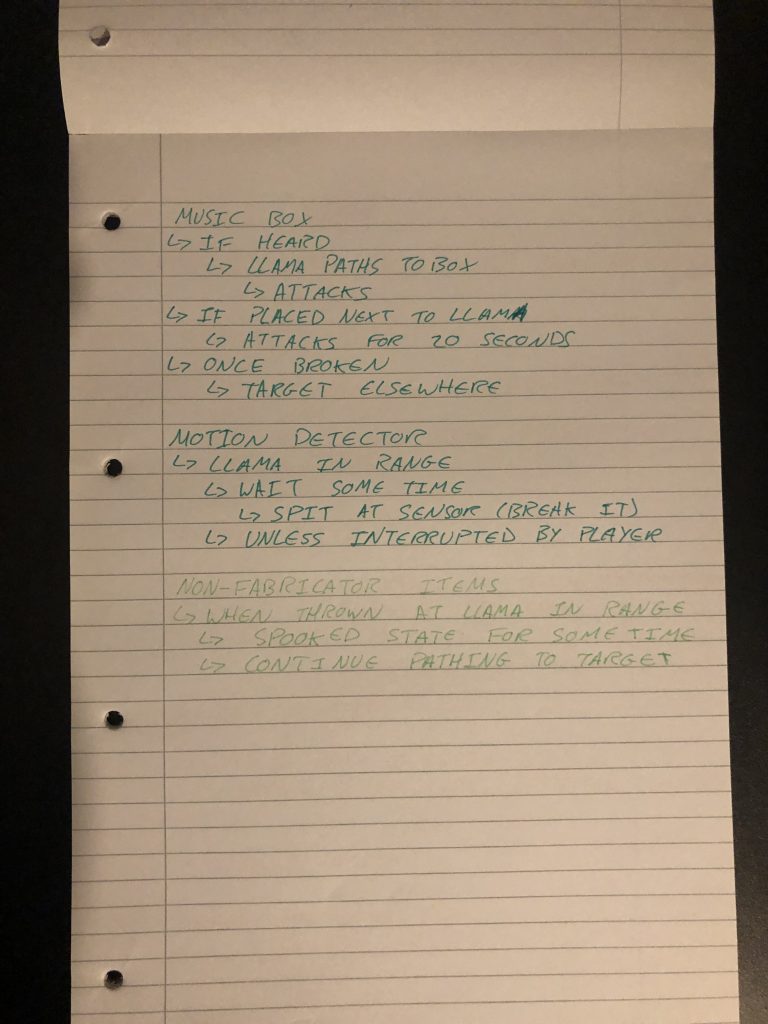 MUSIC BOX
↳ IF HEARD
↳ LLAMA PATHS TO BOX
↳ ATTACKS
↳ IF PLACED NEXT TO LLAMA
↳ ATTACKS FOR 20 SECONDS
↳ ONCE BROKEN
↳ TARGET ELSEWHERE
MOTION DETECTOR
↳ LLAMA IN RANGE
↳ WAIT SOME TIME
↳ SPIT AT SENSOR (BREAK IT)
↳ UNLESS INTERRUPTED BY PLAYER
NON-FABRICATOR ITEMS
↳ WHEN THROWN AT LLAMA IN RANGE
↳ SPOOKED STATE FOR SOME TIME
↳ CONTINUE PATHING TO TARGET